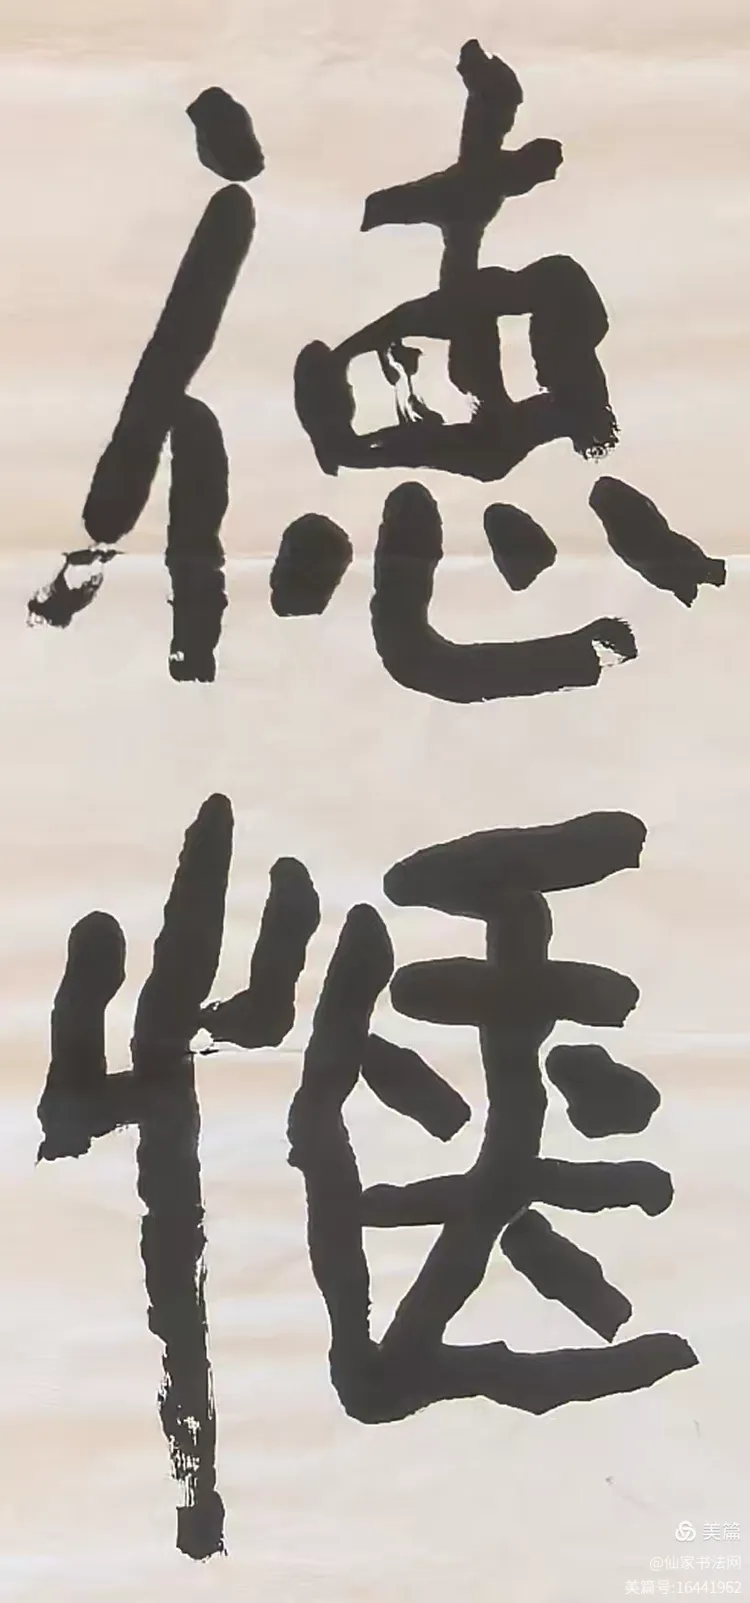 徳
惬
美篇
@仙家书法网
美篇号:16441962